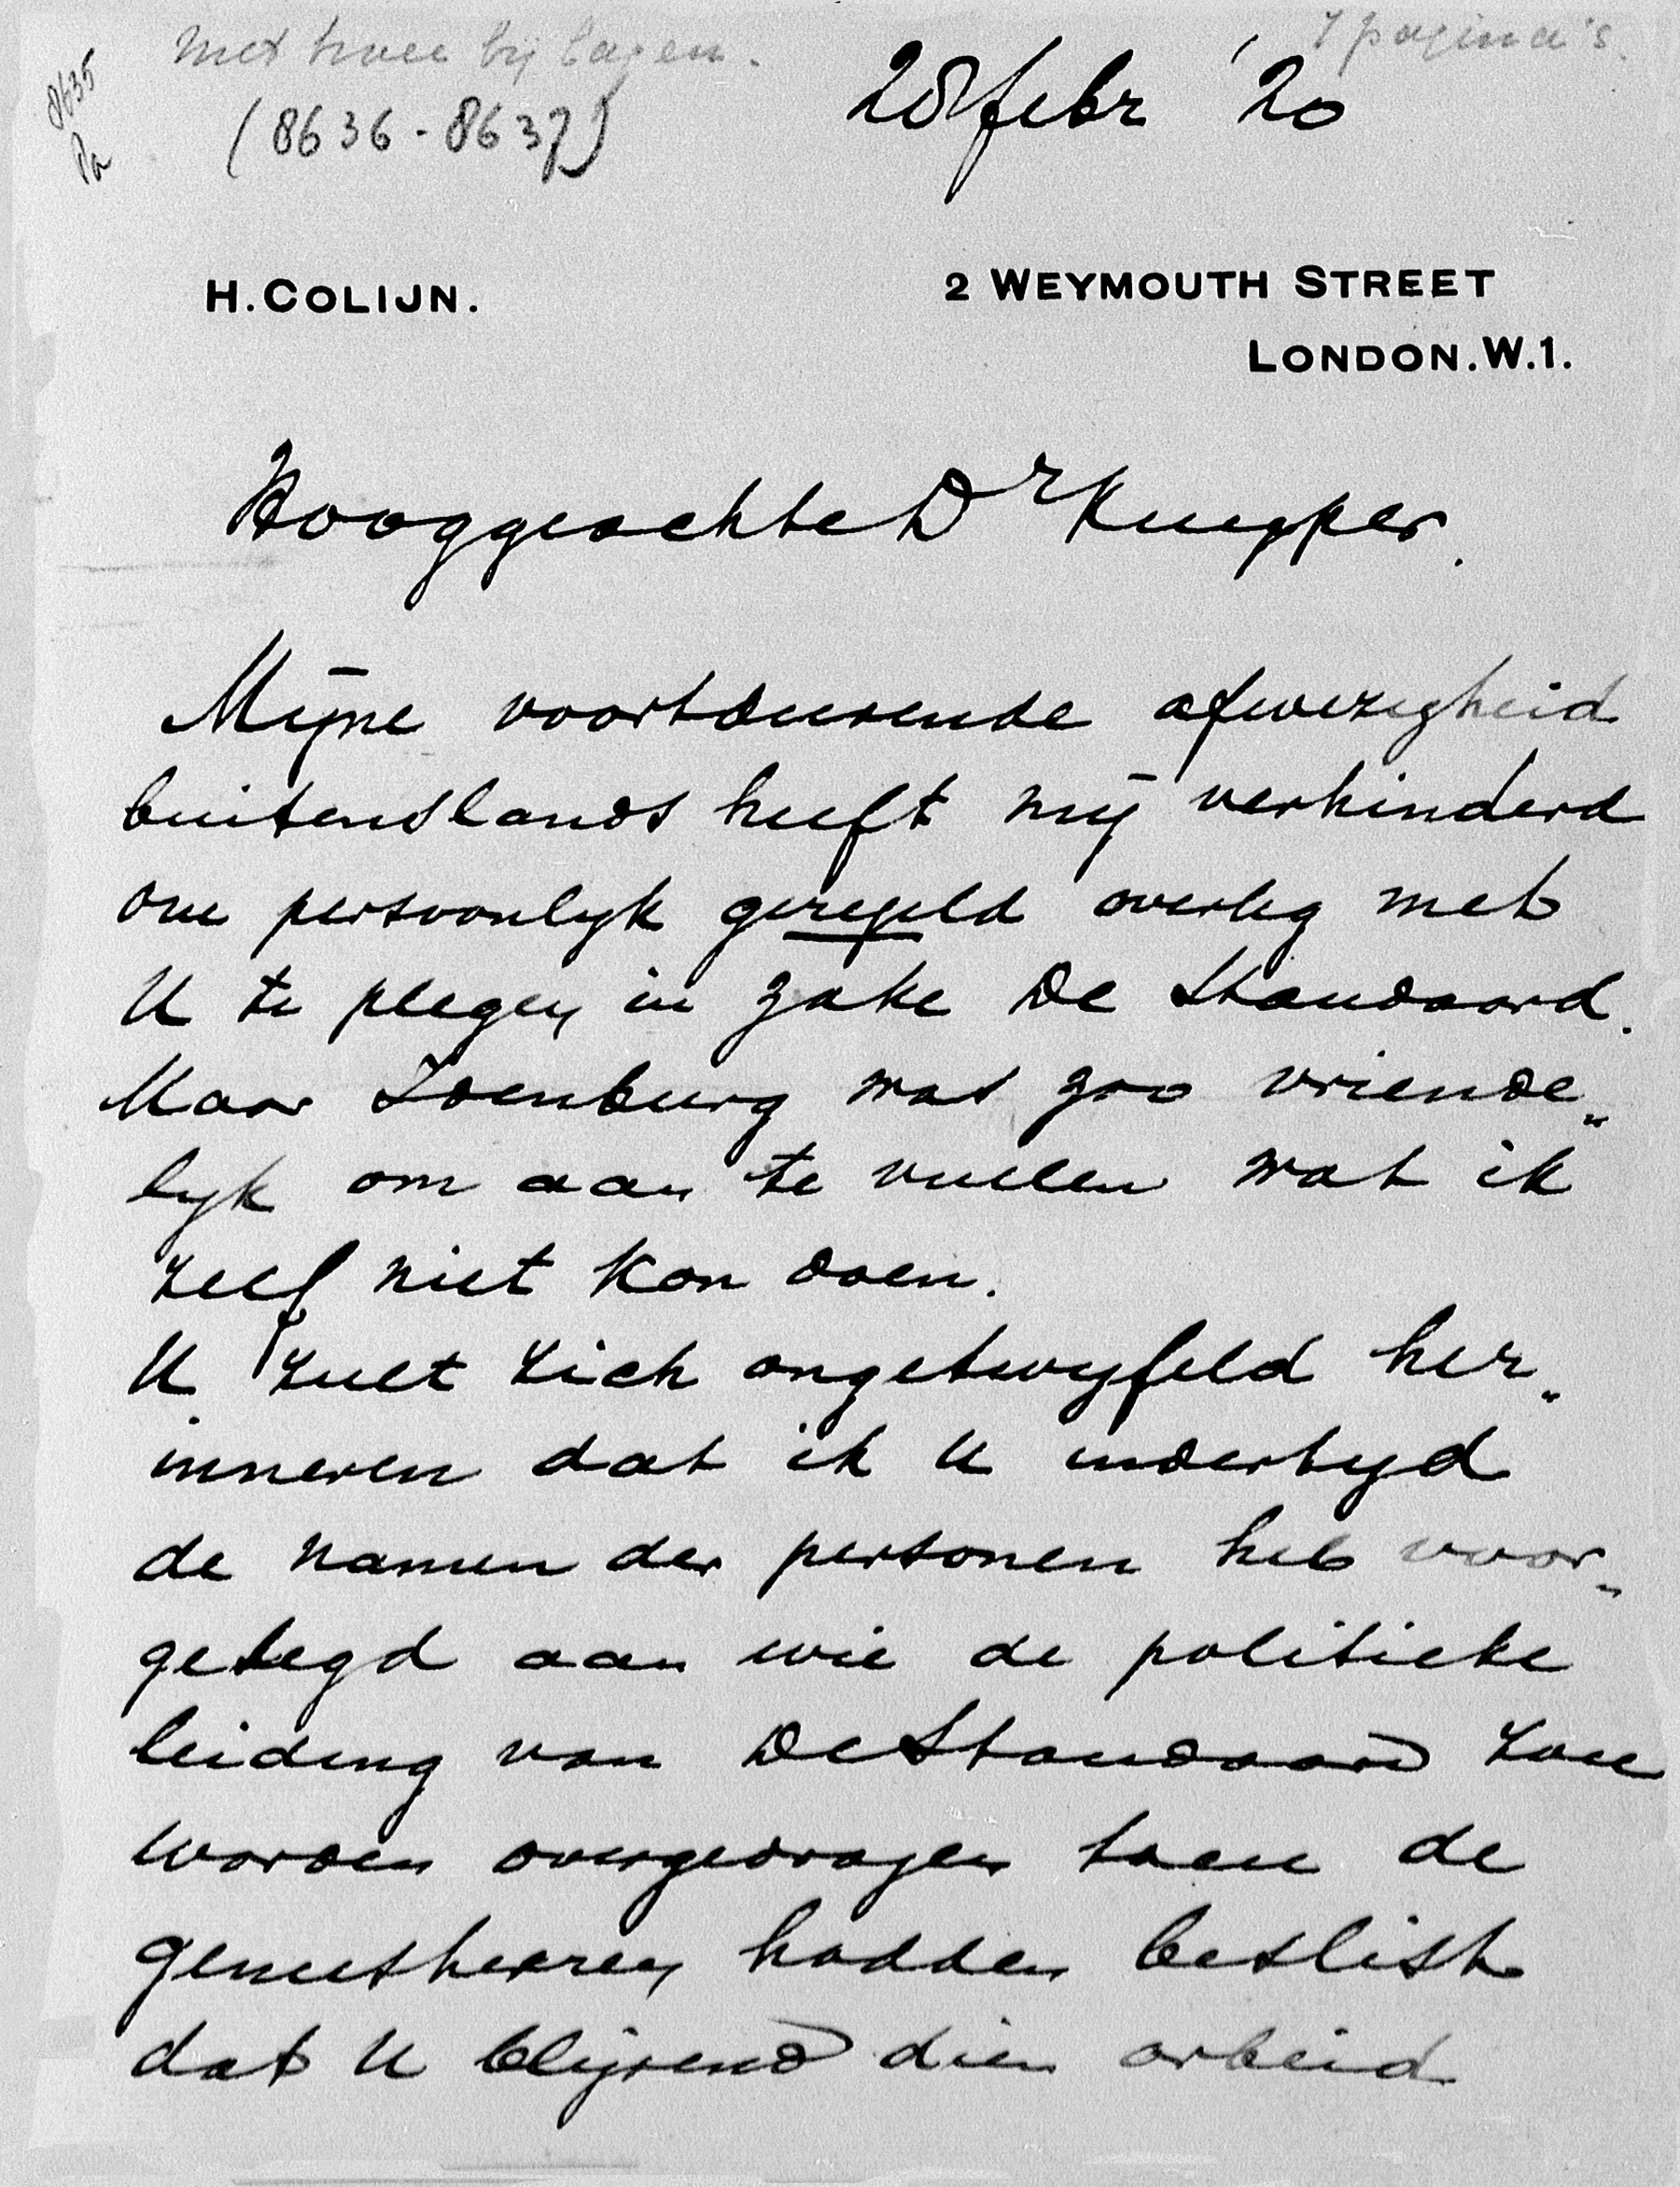 met twee bijlagen.
7 pagina's.
8635
Pa
(8636-8637)
28 febr '20
H. COLIJN.
2 WEYMOUTH STREET
LONDON. W.1.
Hooggeachte Dr Kuyper.
Mijne voortdurende afwezigheid
buitenslands heeft mij verhinderd
om persoonlyk geregeld overleg met
U te plegen in zake De Standaard.
Maar Idenburg was zoo vriende„
lyk om aan te vullen wat ik
zelf niet kon doen.
U zult zich ongetwyfeld her„
inneren dat ik U indertyd
de namen der personen heb voor„
gelegd aan wie de politieke
leiding van De Standaard zou
worden overgedragen toen de
geneesheeren hadden beslist
dat U blijvend dien arbeid